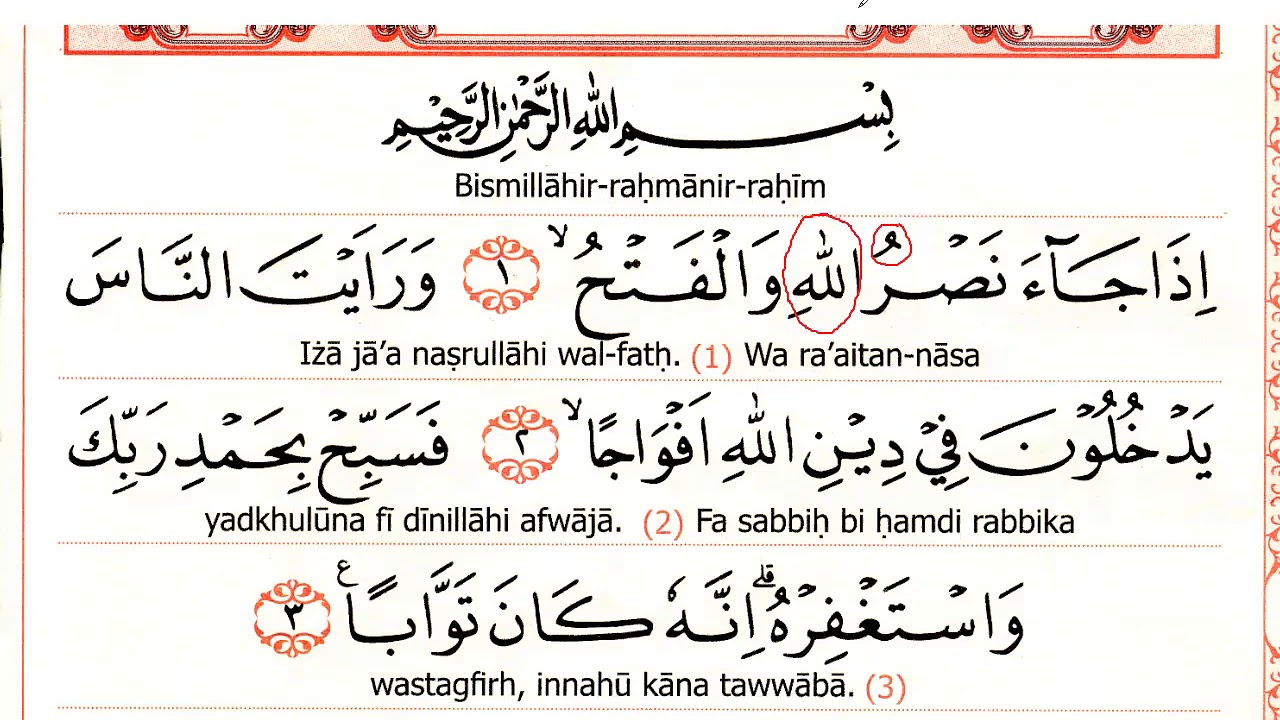 بِسْمِ اللّٰهِ الرَّحْمٰنِ الرَّحِيْمِ
Bismillāhir-raḥmānir-raḥīm
اِذَا جَاۤءَ نَصْرُ اللّٰهِ وَالْفَتْحُۙ ١ وَرَاَيْتَ النَّاسَ
Iżā jā’a naṣrullāhi wal-fatḥ. (1) Wa ra’aitan-nāsa
يَدْخُلُوْنَ فِيْ دِيْنِ اللّٰهِ اَفْوَاجًاۙ ٢ فَسَبِّحْ بِحَمْدِ رَبِّكَ
yadkhulūna fī dīnillāhi afwājā. (2) Fa sabbiḥ bi ḥamdi rabbika
وَاسْتَغْفِرْهُۗ اِنَّهٗ كَانَ تَوَّابًا ع ٣
wastagfirh, innahū kāna tawwābā. (3)